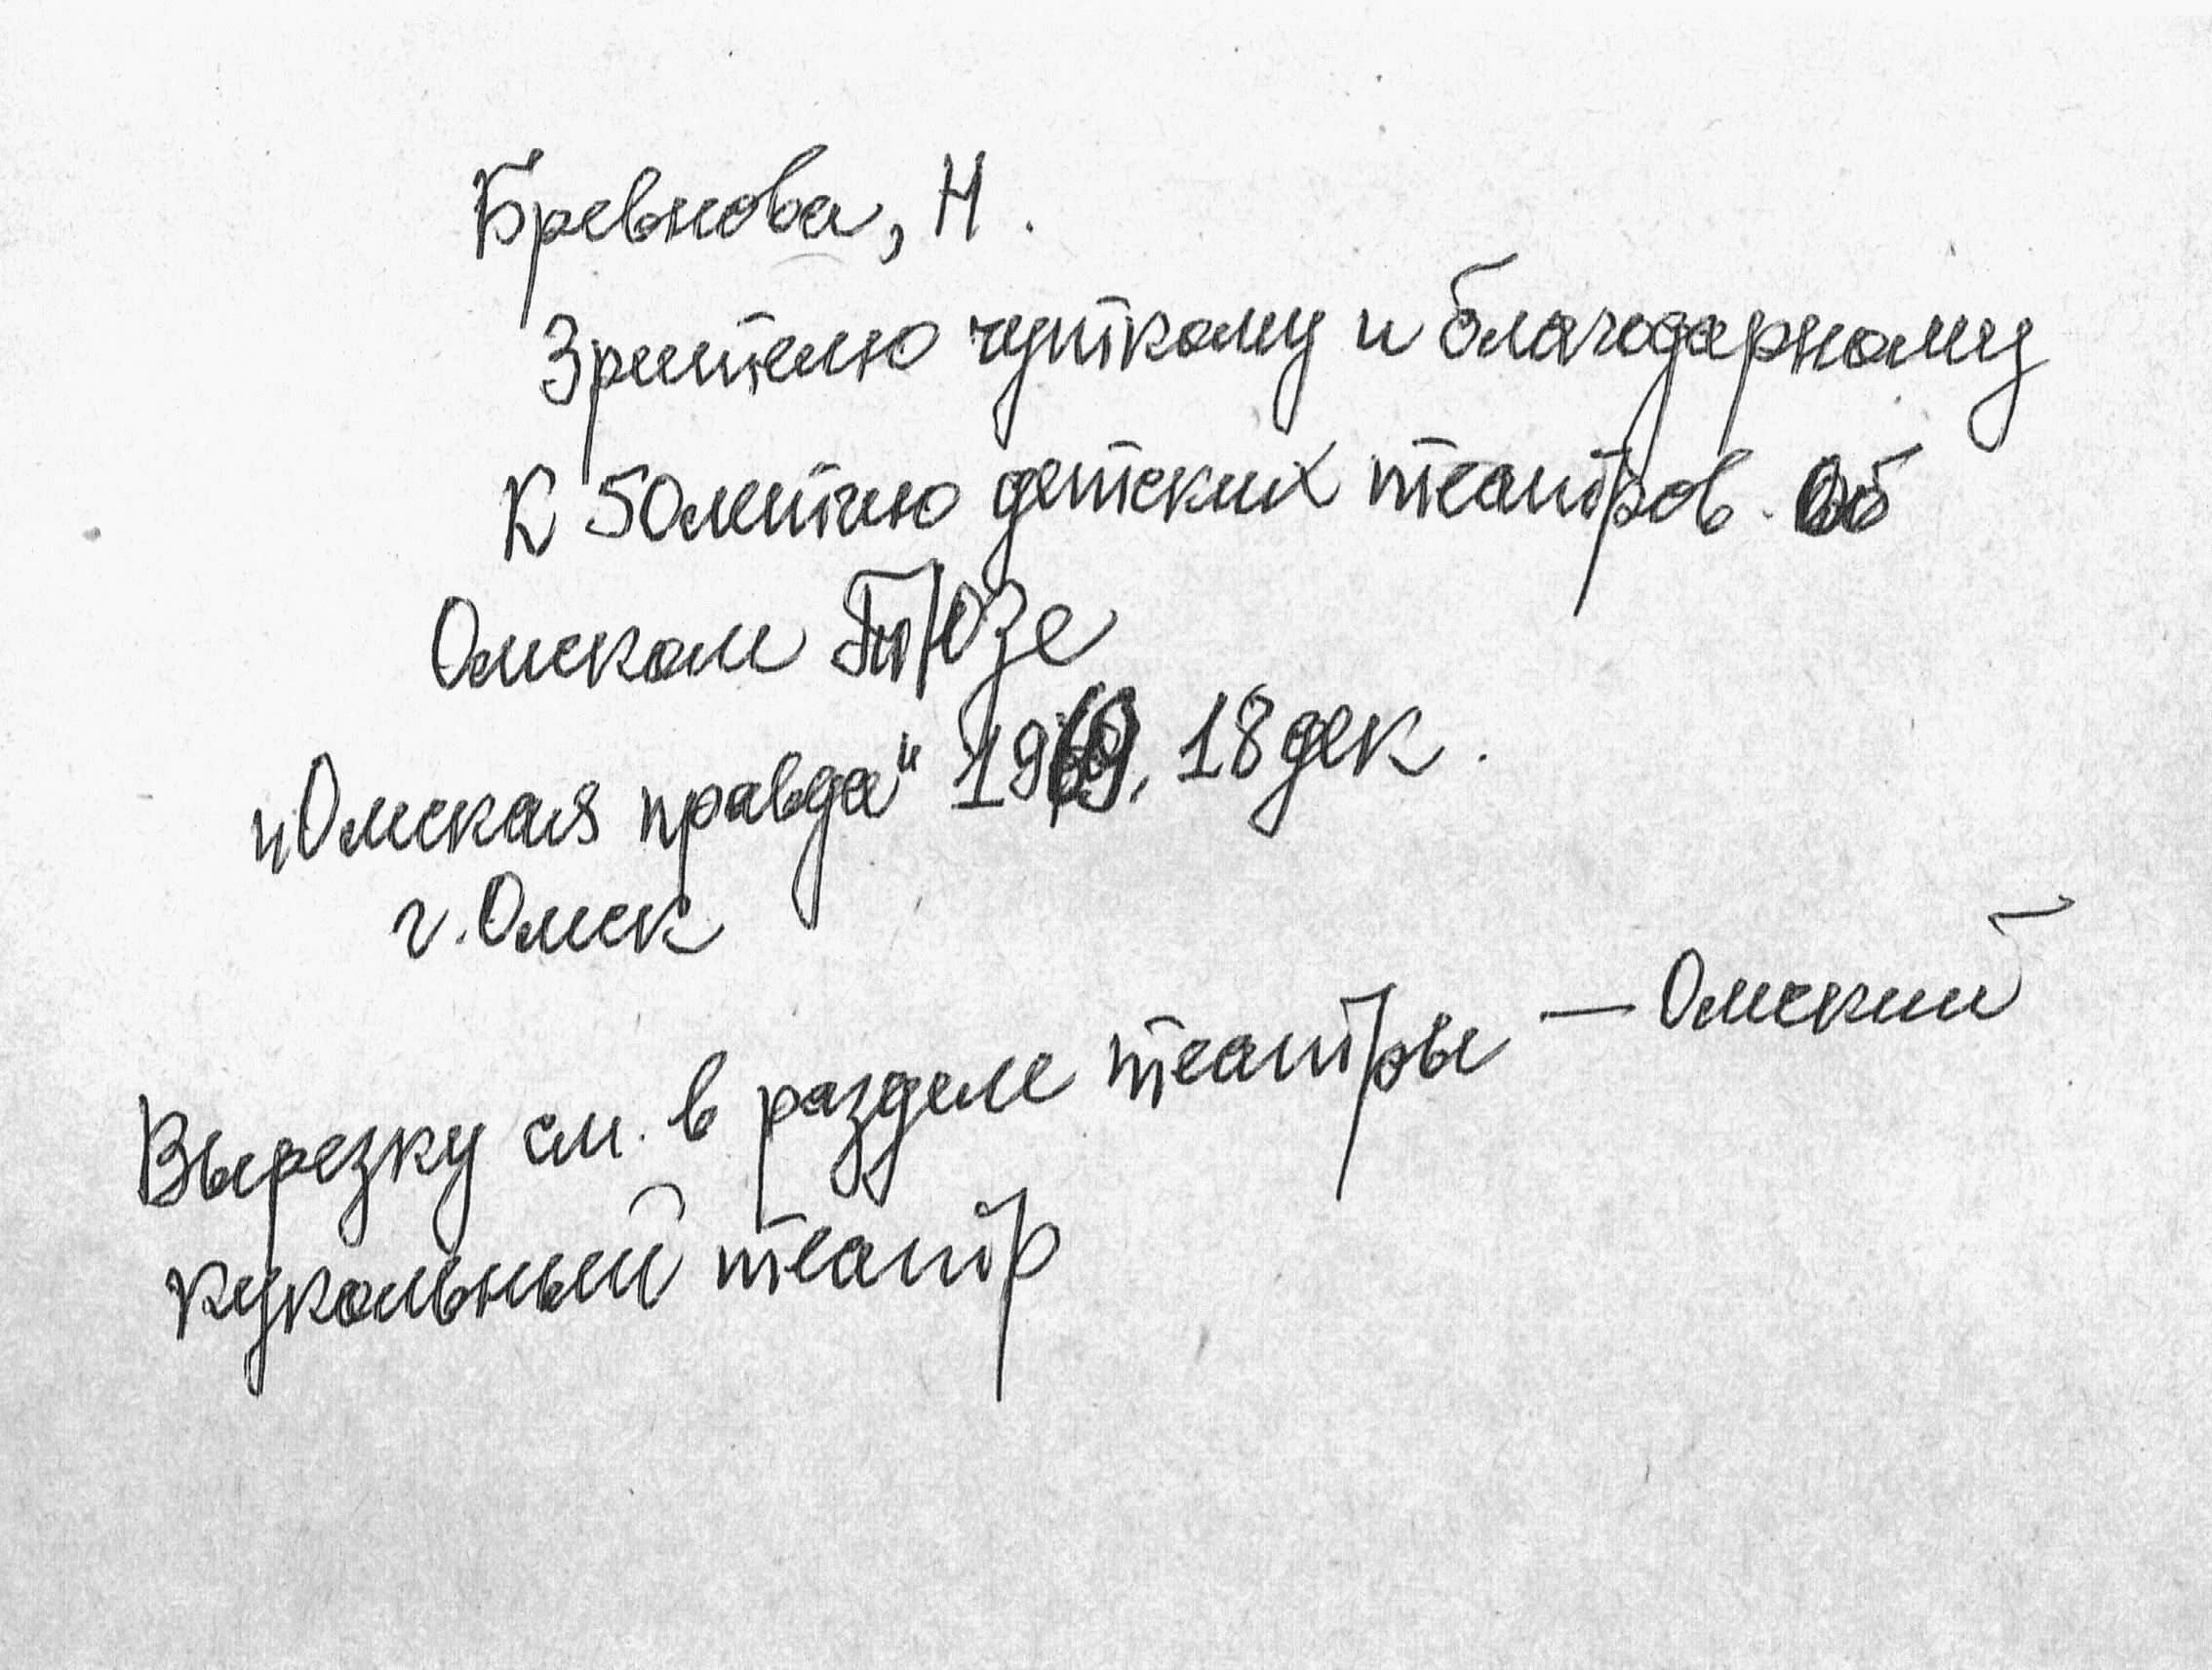 Бревнова, Н.
Зрителю чуткому и благодарному
К 50летию детских театров. Об
Омском ТЮЗе
"Омская правда" 1969, 18 дек.
г. Омск
Вырезку см. в разделе театры — Омский
кукольный театр